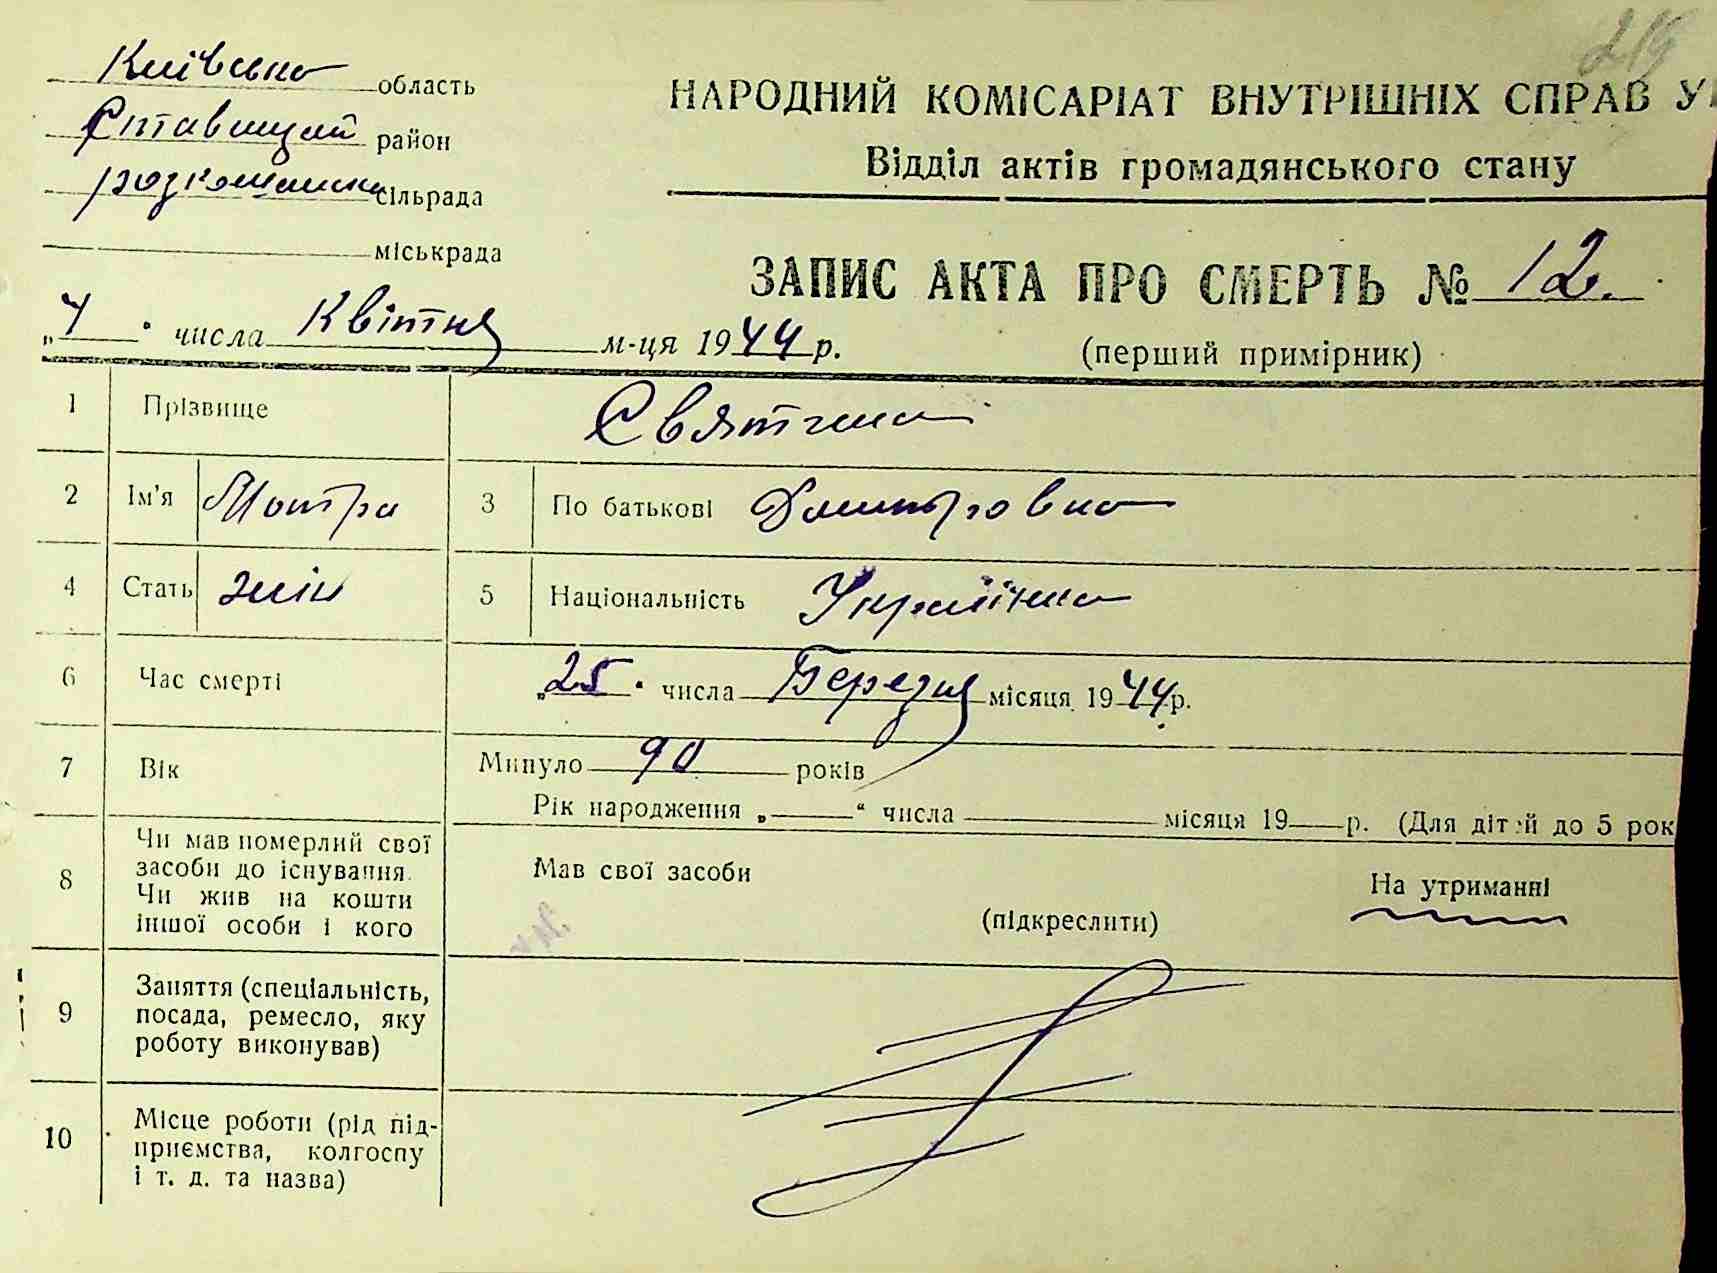 219
Київська область
Ставищий район
розкошанська сільрада
міськрада
НАРОДНИЙ КОМІСАРІАТ ВНУТРІШНІХ СПРАВ У
Відділ актів громадянського стану
ЗАПИС АКТА ПРО СМЕРТЬ № 12.
(перший примірник)
„4“ числа Квітня м-ця 1944 р.
1 Прізвище Святина
2 Ім'я Мотра 3 По батькові Дмитровна
4 Стать жін 5 Національність Українка
6 Час смерті „25“ числа Березня місяця 1944 р.
7 Вік Минуло 90 років
Рік народження „ “ числа місяця 19 р. (Для дітей до 5 рок
8 Чи мав померлий свої засоби до існування. Чи жив на кошти іншої особи і кого
Мав свої засоби (підкреслити) На утриманні
9 Заняття (спеціальність, посада, ремесло, яку роботу виконував)
10 Місце роботи (рід підприємства, колгоспу і т. д. та назва)